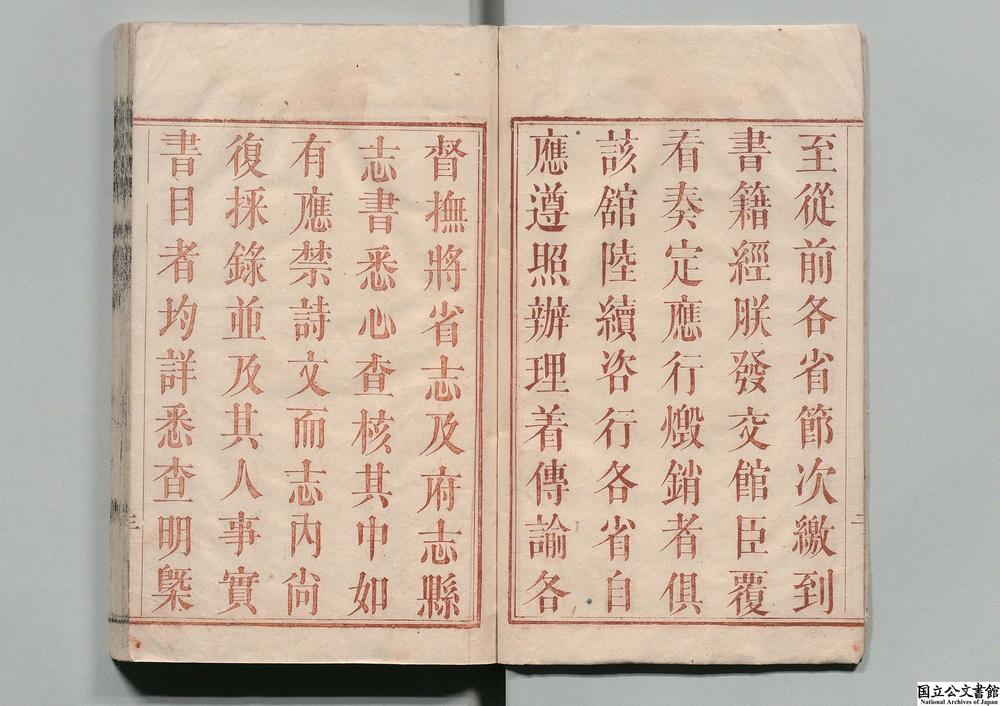 至從前各省節次繳到
書籍經朕發交館臣覆
看奏定應行燬銷者俱
該舘陸續咨行各省自
應遵照辦理着傳諭各
督撫將省志及府志縣
志書悉心查核其中如
有應禁詩文而志內尙
復採錄並及其人事實
書目者均詳悉查明槩
国立公文書館
National Archives of Japan